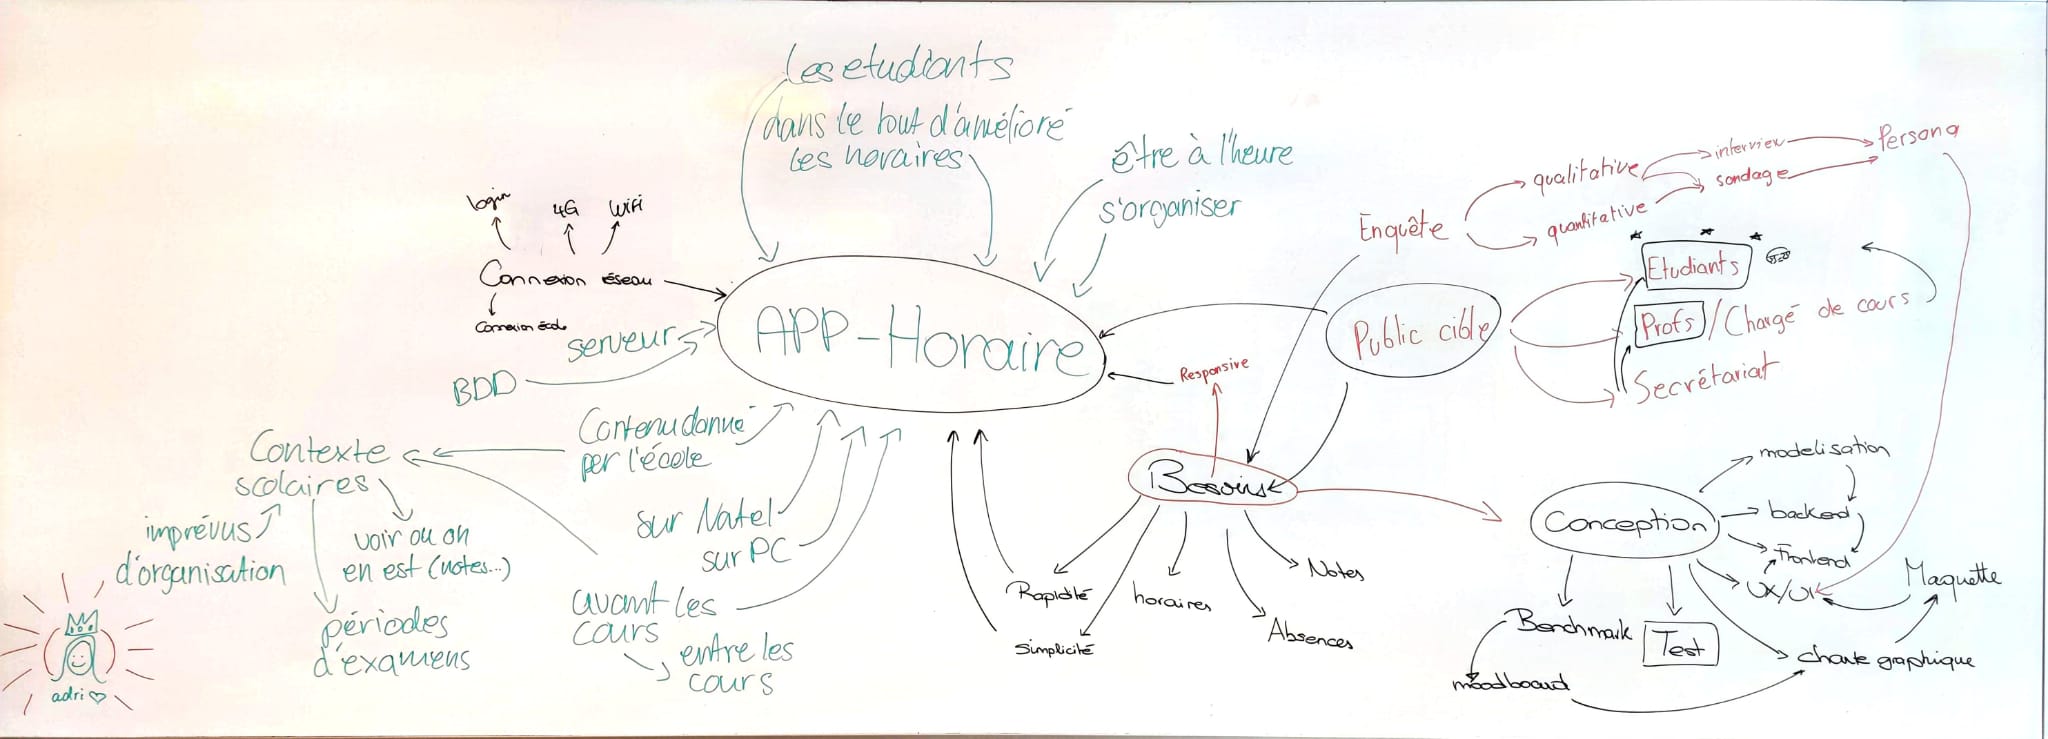 Les etudiants
dans le but d'amélioré
les horaires
être à l'heure
s'organiser
login
4G
Wifi
Connexion réseau
Connexion école
serveur
BDD
APP-Horaire
Contenu donné
per l'école
Contexte
scolaires
imprévus
d'organisation
voir ou on
en est (notes...)
périodes
d'examens
sur Natel
sur PC
avant les
cours
entre les
cours
adri
Enquête
qualitative
quantitative
interview
sondage
Persona
Public cible
Etudiants
Profs / Chargé de cours
Secrétariat
Responsive
Besoins
Rapidité
Simplicité
horaires
Absences
Notes
Conception
modelisation
backend
Frontend
UX/UI
Maquette
Benchmark
Test
moodboard
charte graphique